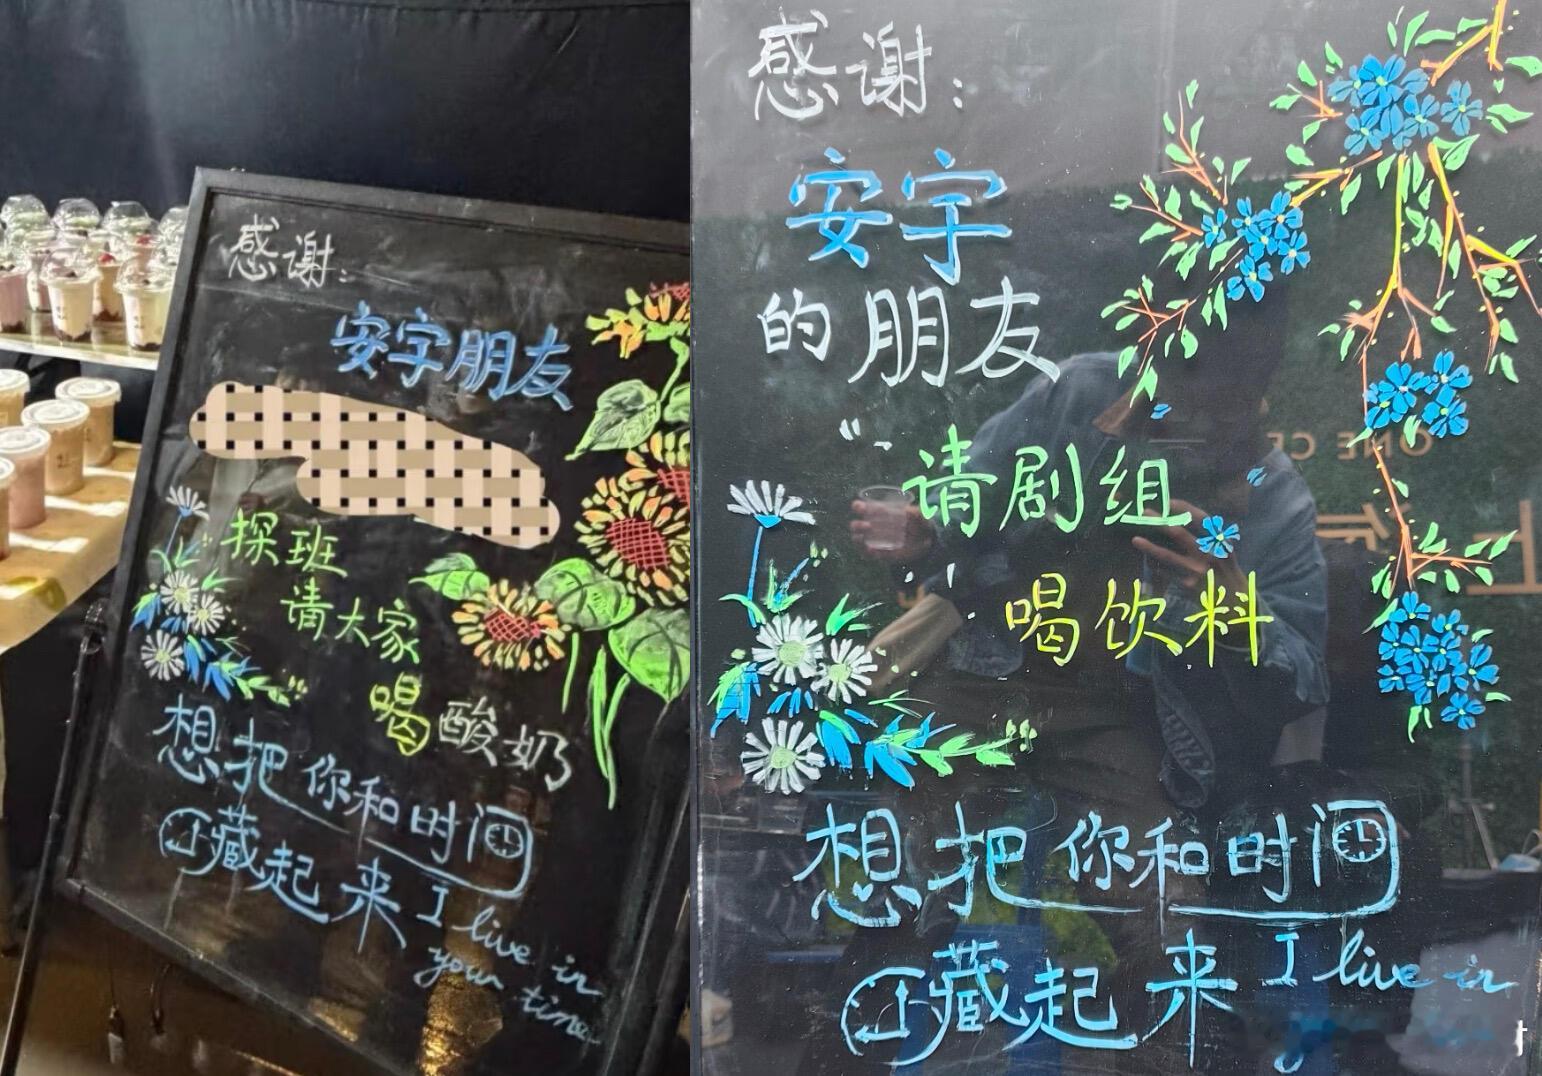 感谢:
安宇朋友
探班
请大家
喝酸奶
想把你和时间
藏起来 I live in
your time
感谢:
安宇
的朋友
请剧组
喝饮料
想把你和时间
藏起来 I live in
ONE CE